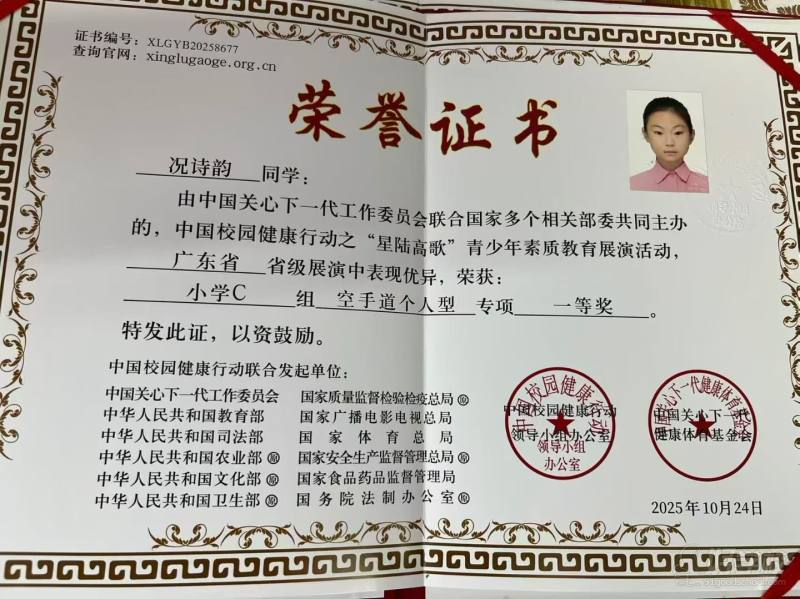 证书编号：XLGYB20258677
查询官网：xinglugaoge.org.cn
荣誉证书
况诗韵 同学：
由中国关心下一代工作委员会联合国家多个相关部委共同主办
的，中国校园健康行动之“星陆高歌”青少年素质教育展演活动，
广东省 省级展演中表现优异，荣获：
小学C 组 空手道个人型 专项 一等奖 。
特发此证，以资鼓励。
中国校园健康行动联合发起单位：
中国关心下一代工作委员会 国家质量监督检验检疫总局 原
中华人民共和国教育部 国家广播电影电视总局
中华人民共和国司法部 国家体育总局
中华人民共和国农业部 原 国家安全生产监督管理总局 原
中华人民共和国文化部 原 国家食品药品监督管理局
中华人民共和国卫生部 原 国务院法制办公室 原
中国校园健康行动
领导小组办公室
中国校园健康行动
领导小组
办公室
中国关心下一代
健康体育基金会
中国关心下一代健康体育基金会
2025年10月24日